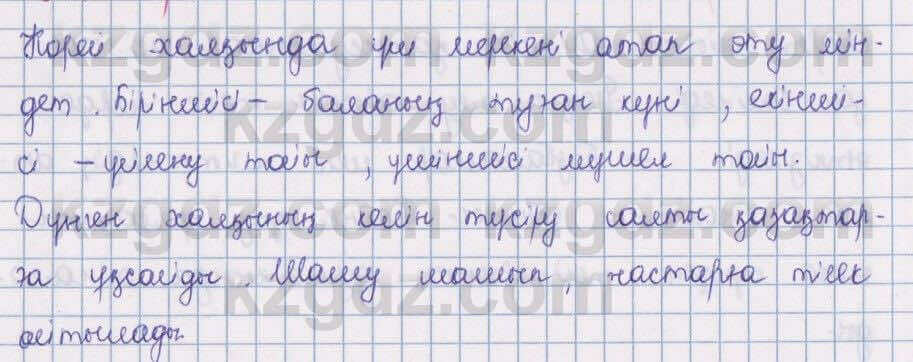 Корей халқында үш мерекені атап өту мін-
дет. Біріншісі – баланың туған күні, екінші-
сі – үйлену тойы, үшіншісі мүшел тойы.
Дүнген халқының келін түсіру салты қазақтар-
ға ұқсайды. Шашу шашып, жастарға тілек
айтылады.